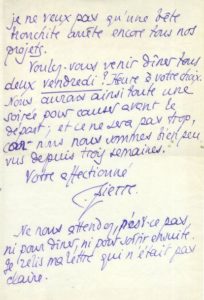 je ne veux pas qu'une bête
bronchite arrête encore tous nos
projets.
Voulez-vous venir dîner tous
deux vendredi ? Heure à votre choix.
Nous aurons ainsi toute une
soirée pour causer avant le
départ ; et ce ne sera pas trop,
car nous nous sommes bien peu
vus depuis trois semaines.
Votre affectionné
Pierre.
Ne nous attendez, n'est-ce pas,
ni pour dîner, ni pour sortir ensuite.
Je relis ma lettre qui n'était pas
claire.